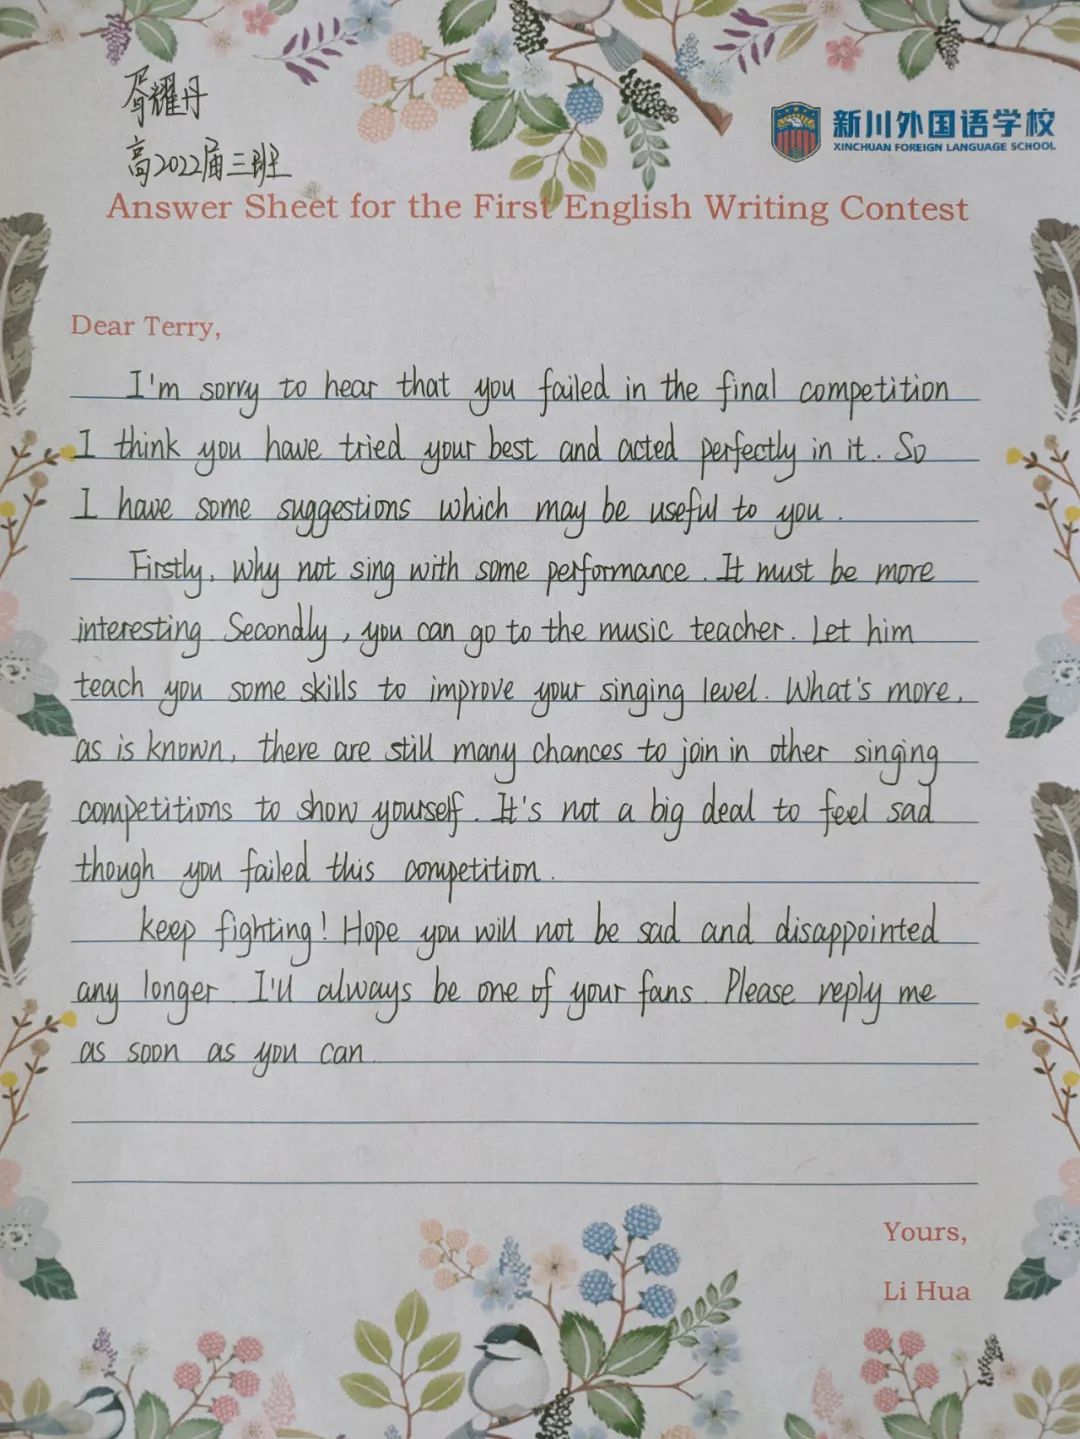 胥耀丹
高2022届三班
新川外国语学校
XINCHUAN FOREIGN LANGUAGE SCHOOL
Answer Sheet for the First English Writing Contest
Dear Terry,
I'm sorry to hear that you failed in the final competition
I think you have tried your best and acted perfectly in it. So
I have some suggestions which may be useful to you.
Firstly, why not sing with some performance. It must be more
interesting. Secondly, you can go to the music teacher. Let him
teach you some skills to improve your singing level. What's more,
as is known, there are still many chances to join in other singing
competitions to show yourself. It's not a big deal to feel sad
though you failed this competition.
keep fighting! Hope you will not be sad and disappointed
any longer. I'll always be one of your fans. Please reply me
as soon as you can.
Yours,
Li Hua